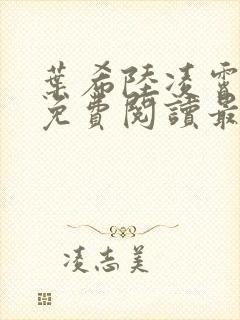 葉希陸凌霄
免費閱讀最
凌志美